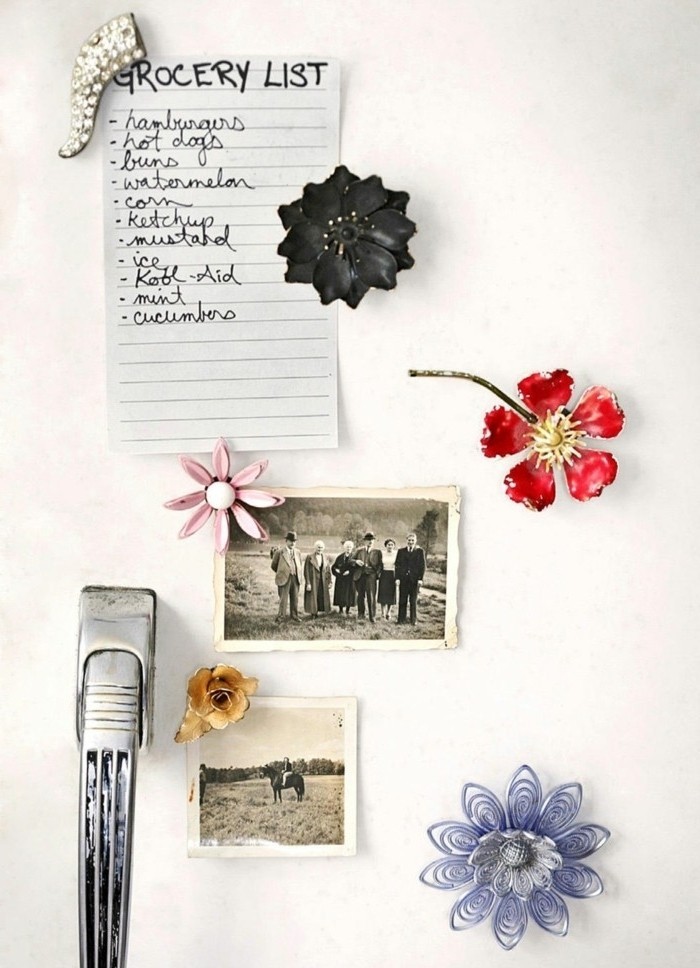 GROCERY LIST
- hamburgers
- hot dogs
- buns
- watermelon
- corn
- ketchup
- mustard
- ice
- Kool-Aid
- mint
- cucumbers